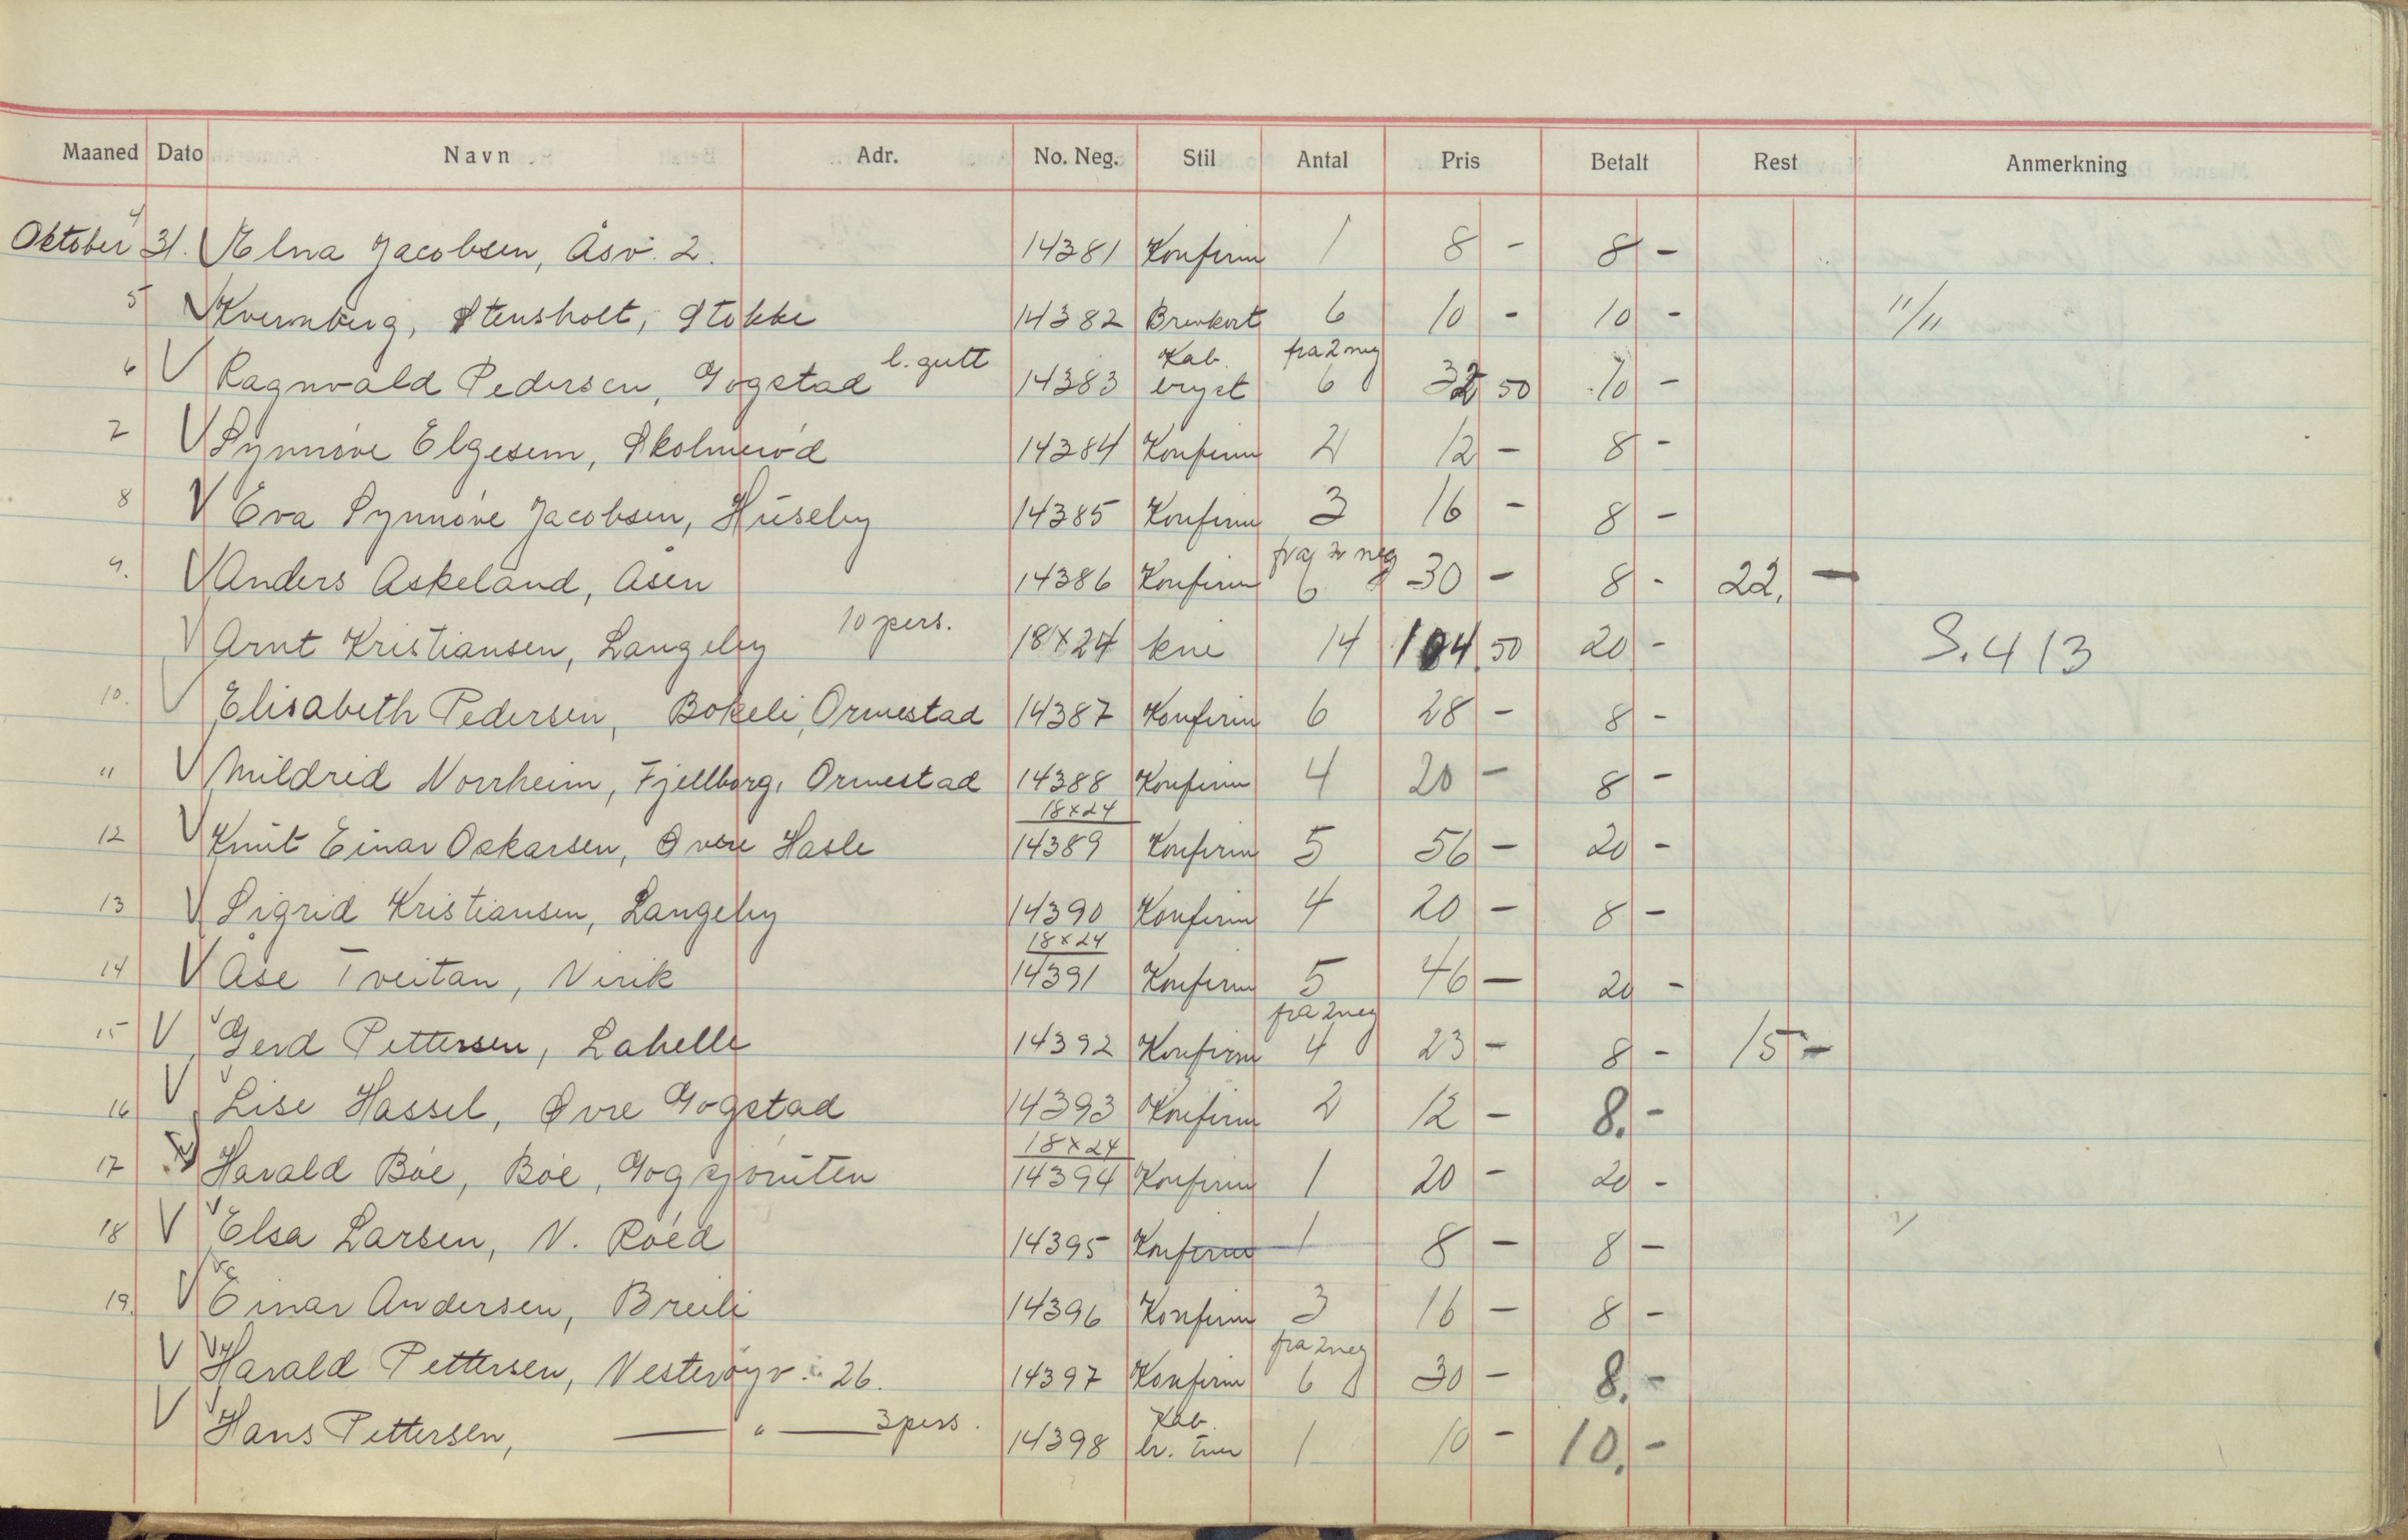 Maaned Dato Navn Adr. No. Neg. Stil Antal Pris Betalt Rest Anmerkning
Oktober 4 31. V Elna Jacobsen, Åsv. 2. 14381 Konfirm 1 8 - 8 -
5 V Kvernberg, Stensholt, Stokke 14382 Brevkort 6 10 - 10 - 11/11
6 V Ragnvald Pedersen, Gogstad l. gutt 14383 Kab. bryst fra 2 neg 6 32 50 10 -
7 V Synnøve Elgesem, Skolmerød 14384 Konfirm 2 12 - 8 -
8 V Eva Synnøve Jacobsen, Huseby 14385 Konfirm 3 16 - 8 -
9. V Anders Askeland, Åsen 14386 Konfirm fra 2 neg 6 30 - 8 - 22, -
V Arnt Kristiansen, Langeby 10 pers. 18x24 kne 14 104.50 20 - S. 413
10. V Elisabeth Pedersen, Bokeli, Ormestad 14387 Konfirm 6 28 - 8 -
11 V Mildrid Norrheim, Fjellborg, Ormestad 14388 Konfirm 4 20 - 8 -
12 V Knut Einar Oskarsen, Øvre Hasle 18x24 14389 Konfirm 5 56 - 20 -
13 V Sigrid Kristiansen, Langeby 14390 Konfirm 4 20 - 8 -
14 V Åse Tveitan, Virik 18x24 14391 Konfirm 5 46 - 20 -
15 V Gerd Pettersen, Lahelle 14392 Konfirm fra 2 neg 4 23 - 8 - 15 -
16 V Lise Hassel, Øvre Gogstad 14393 Konfirm 2 12 - 8. -
17 V Harald Bøe, Bøe, Gogsjøruten 18x24 14394 Konfirm 1 20 - 20 -
18 V Elsa Larsen, N. Røed 14395 Konfirm 1 8 - 8 -
19. V Einar Andersen, Breili 14396 Konfirm 3 16 - 8 -
V Harald Pettersen, Vesterøyv. 26. 14397 Konfirm fra 2 neg 6 30 - 8. -
V Hans Pettersen, — " — 3 pers. 14398 Kab. 1 10 - 10. -